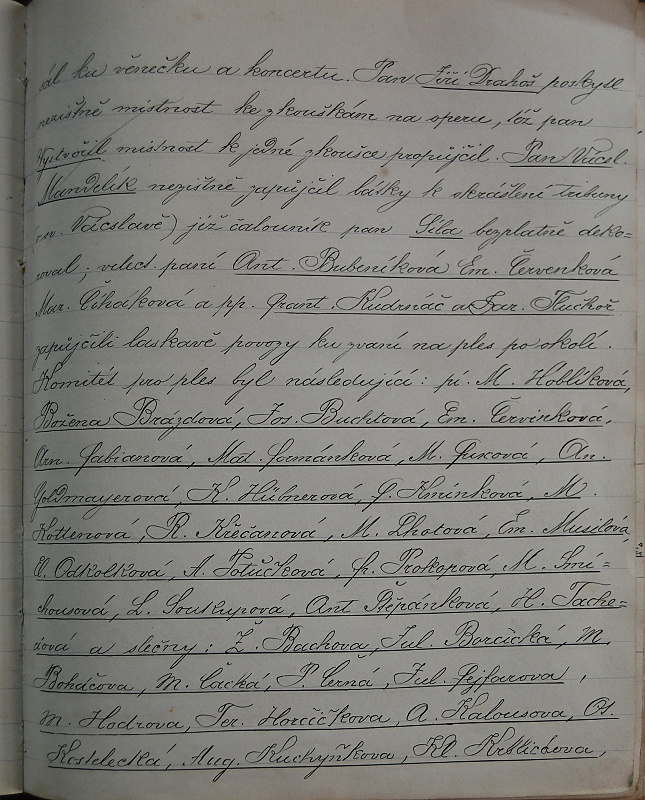 sál ku věnečku a koncertu. Pan Jiří Drahoš poskytl
nezištně místnost ke zkouškám na operu, též pan
Vystvořil místnost k jedné zkoušce propůjčil. Pan Václ.
Mandelík nezištně zapůjčil látky k okrášlení tribuny
(o sv. Václavě) jíž čalouník pan Síla bezplatně deko=
roval; velect. paní Ant. Bubeníková Em. Červenková
Mar. Čiháková a pp. Frant. Kudrnáč a Jar. Tluchoř
zapůjčili laskavě povozy ku zvaní na ples po okolí.
Komitét pro ples byl následující: pí. M. Hoblíková,
Božena Brázdová, Jos. Buchtová, Em. Červinková,
Arn. Fabianová, Mat. Formánková, M. Fuxová, An.
Goldmayerová, K. Hübnerová, G. Kmínková, M.
Kottenová, R. Křečanová, M. Lhotova, Em. Musilová,
Odkolková, A. Potůčková, Fr. Prokopová, M. Smí=
chousová, L. Soukupová, Ant Štěpánková, H. Tacho=
dová a slečny: Ž. Bachova, Jul. Borčická, M.
Boháčova, M. Čacká, P. Černá, Jul. Fejfarova,
M. Hodrova, Ter. Horčičkova, A. Kalousova, Ot.
Kostelecká, Aug. Kuchyňkova, Kl.